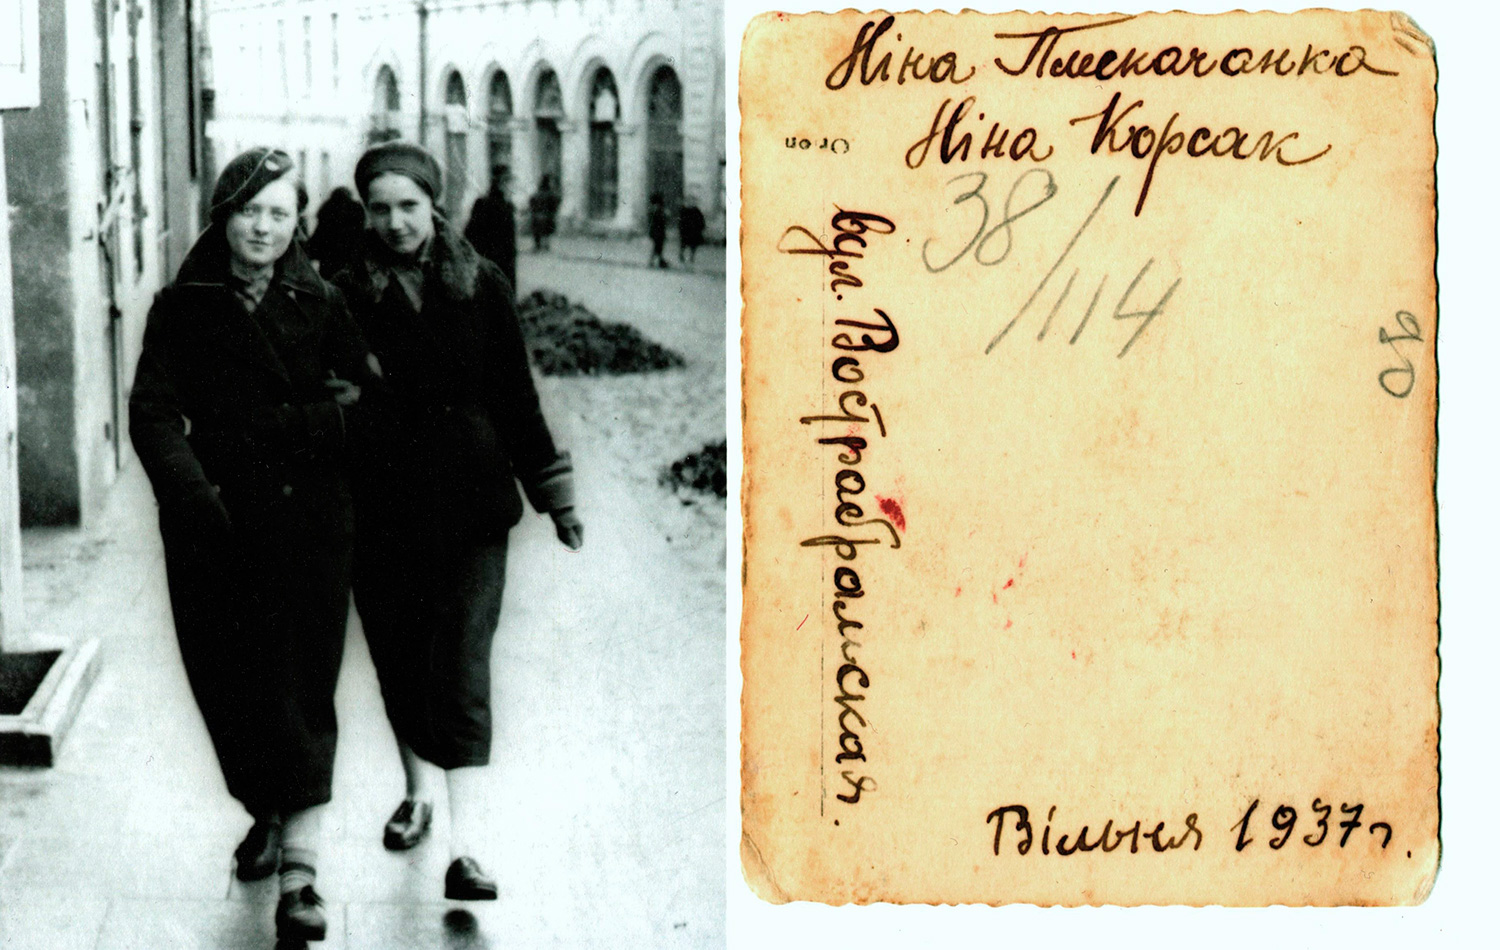 Ніна Плескачанка
Ніна Корсак
38/114
вул. Вострабрамская.
90
Вільня 1937 г.